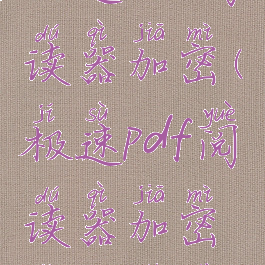 dú qì jiā mì
读器加密(
jí sù yuè
极速pdf阅
dú qì jiā mì
读器加密